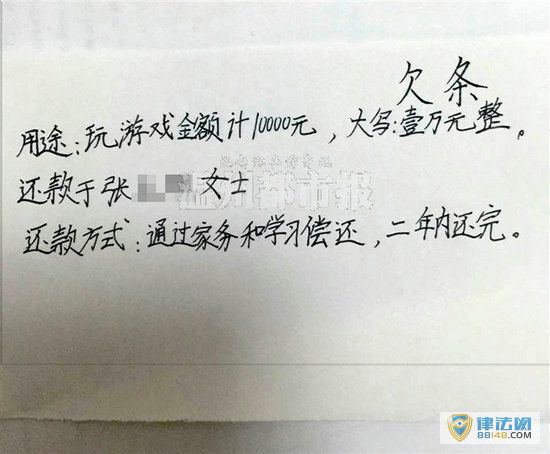 欠条
用途:玩游戏金额计10000元,大写:壹万元整。
还款于张 女士
温州都市报
还款方式:通过家务和学习偿还,二年内还完。
律法网
88148.COM